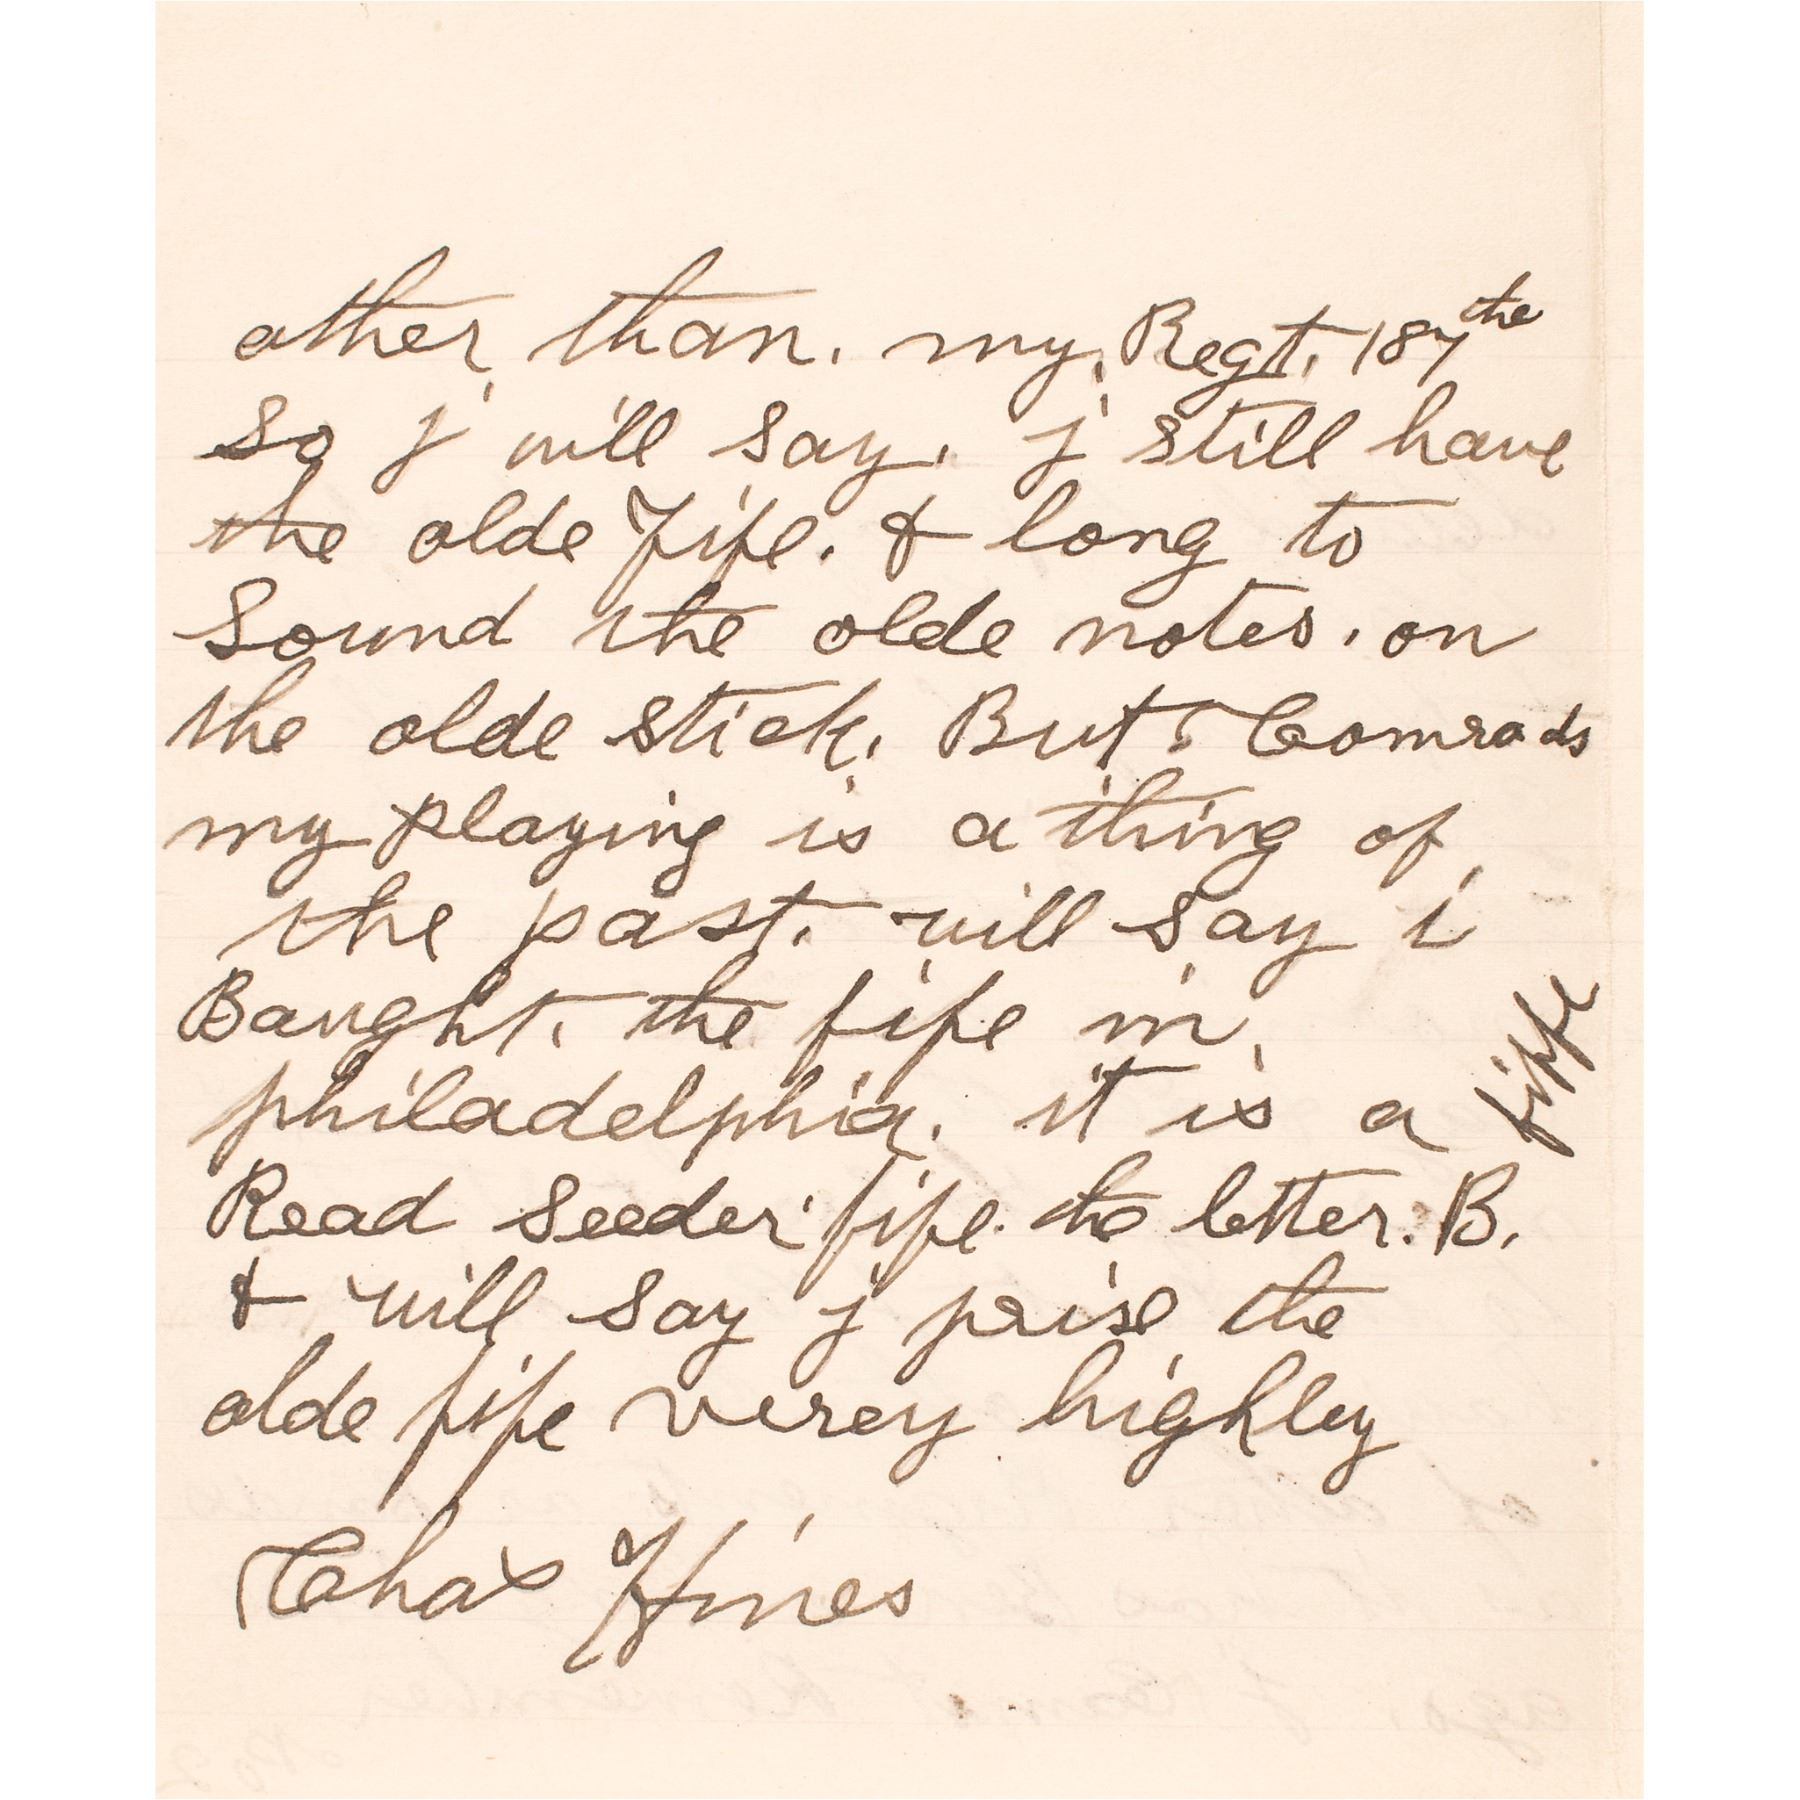 other than. my. Regt. 187the
So j will say. j still have
the olde Fife. & long to
Sound the olde notes. on
the olde stick. But. Comrads
my playing is a thing of
the past. will say i
Baught. the fife in.
philadelphia. it is a
fiffe
Read Seeder fife. the letter. B.
& will say j prise the
olde fife verey highley
Chas Hines